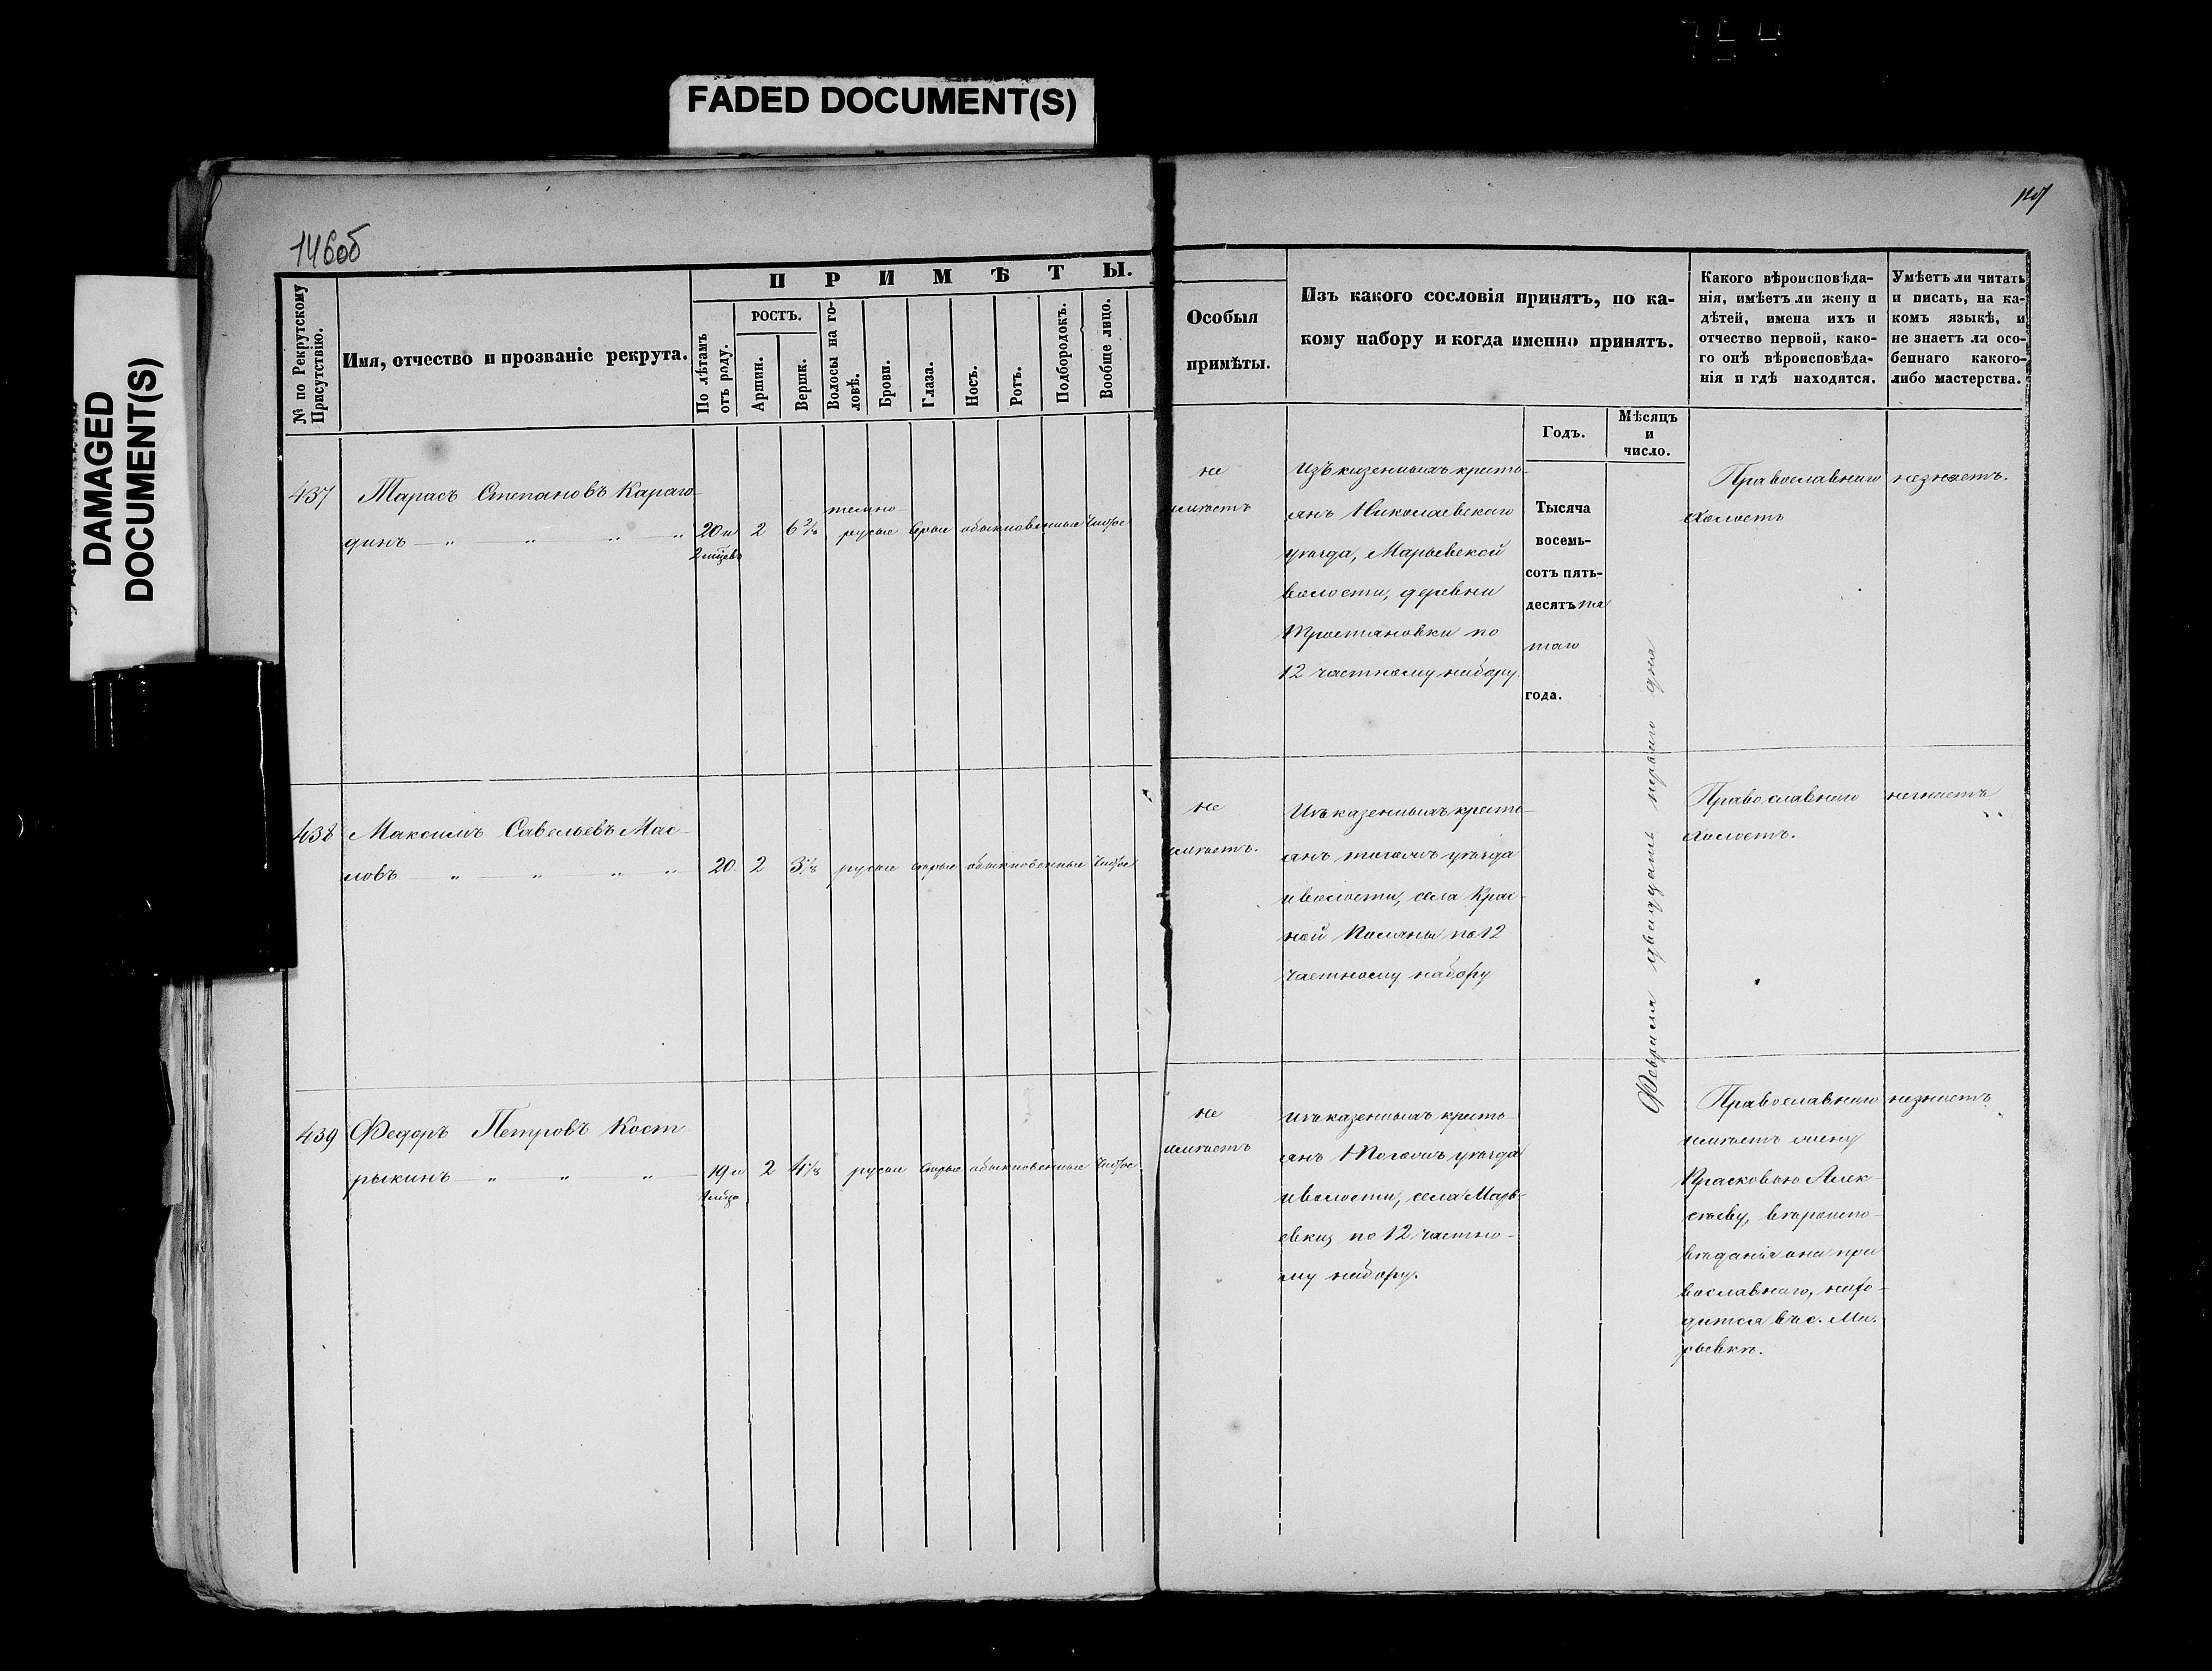 FADED DOCUMENT(S)
DAMAGED
DOCUMENT(S)
146об
П Р И М Ѣ Т Ы.
№ по Рекрутскому
Присутствію.
Имя, отчество и прозваніе рекрута.
По лѣтамъ
отъ роду.
РОСТЪ.
Аршин.
Вершк.
Волосы на го-
ловѣ.
Брови.
Глаза.
Носъ.
Ротъ.
Подбородокъ.
Вообще лицо.
Особыя
примѣты.
Изъ какого сословія принятъ, по ка-
кому набору и когда именно принятъ.
Годъ.
Мѣсяцъ
и
число.
Какого вѣроисповѣда-
нія, имѣетъ ли жену и
дѣтей, имена ихъ и
отчество первой, како-
го онѣ вѣроисповѣда-
нія и гдѣ находятся.
Умѣетъ ли читать
и писать, на ка-
комъ языкѣ, и
не знаетъ ли осо-
беннаго какого-
либо мастерства.
437
Тарасъ Степановъ Караго-
динъ — „ — „ „ „
20 и
2 мѣсца
2
6 2/8
темно
русые
сѣрые
обыкновенные
чистое
не
имѣетъ
Изъ казенныхъ кресть-
янъ Николаевскаго
уѣзда, Марьевской
волости, деревни
Тростяновки по
12 частному набору.
Тысяча
восемь-
сотъ пять-
десятъ пя
таго
года.
Февраля двадцать перваго дня
Православнаго
Холостъ
незнаетъ.
438
Максимъ Савельевъ Мас-
ловъ — „ — „ „ „
20
2
русые
сѣрые
обыкновенные
чистое
не
имѣетъ.
Изъ казенныхъ кресть-
янъ тогожъ уѣзда
и волости, села Крас-
ной Поляны по 12
частному набору
Православнаго
Холостъ.
незнаетъ
439
Федоръ Петровъ Кост-
рыкинъ — „ „ „ —
19 и
2
русые
сѣрые
обыкновенные
чистое
не
имѣетъ
Изъ казенныхъ кресть-
янъ Тогожъ уѣзда
и волости, села Марь-
евки, по 12 частно-
му набору.
Православнаго
имѣетъ жену
Прасковью Алек-
сѣеву, вѣроиспо-
вѣданія она пра
вославнаго, нахо-
дится въ с. Ма-
рьевкѣ.
незнаетъ